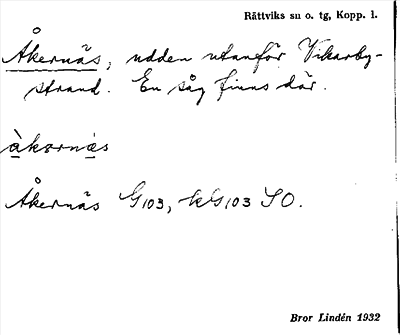 Rättviks su o. tg, Kopp. l.
Åkernäs, udden utanför Vikarby-
strand. En såg finns där.
àkernäs
Åkernäs G103, kG103 SO.
Bror Lindén 1932